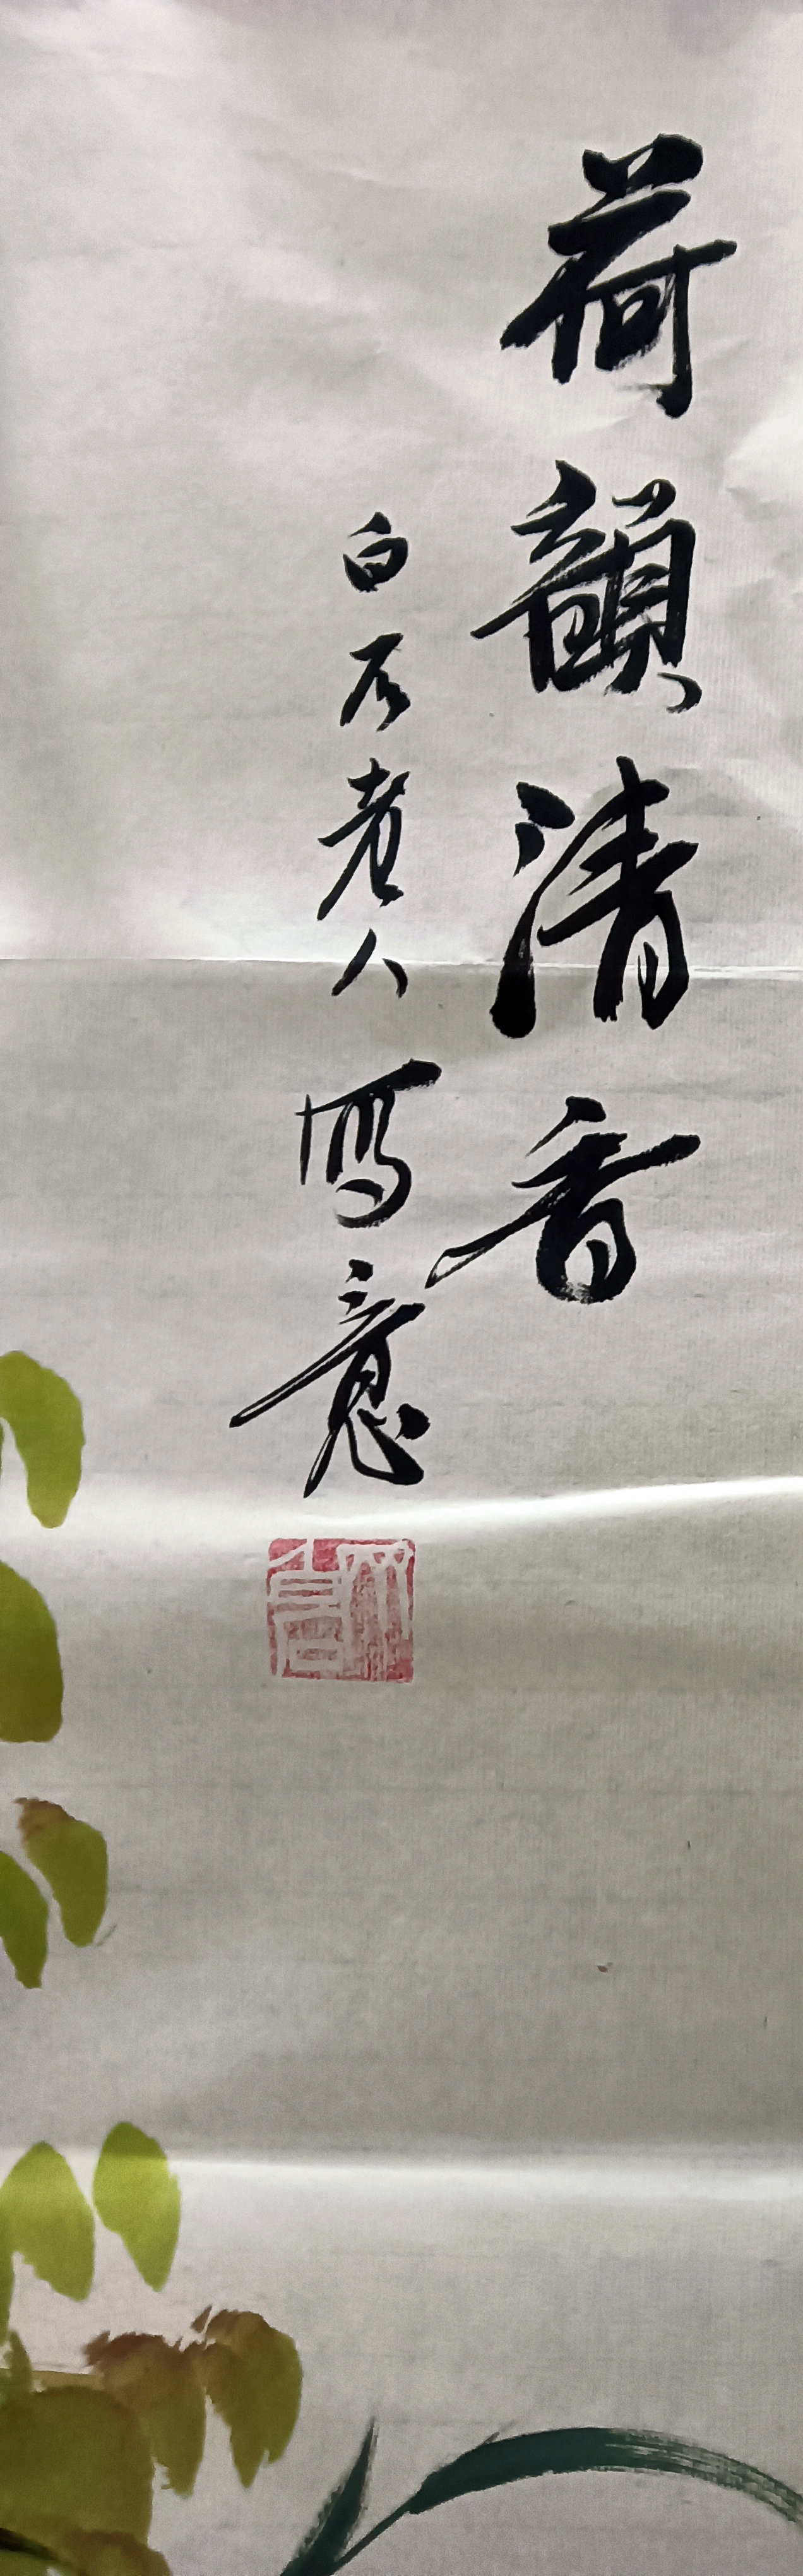 荷韻清香
白石老人寫意